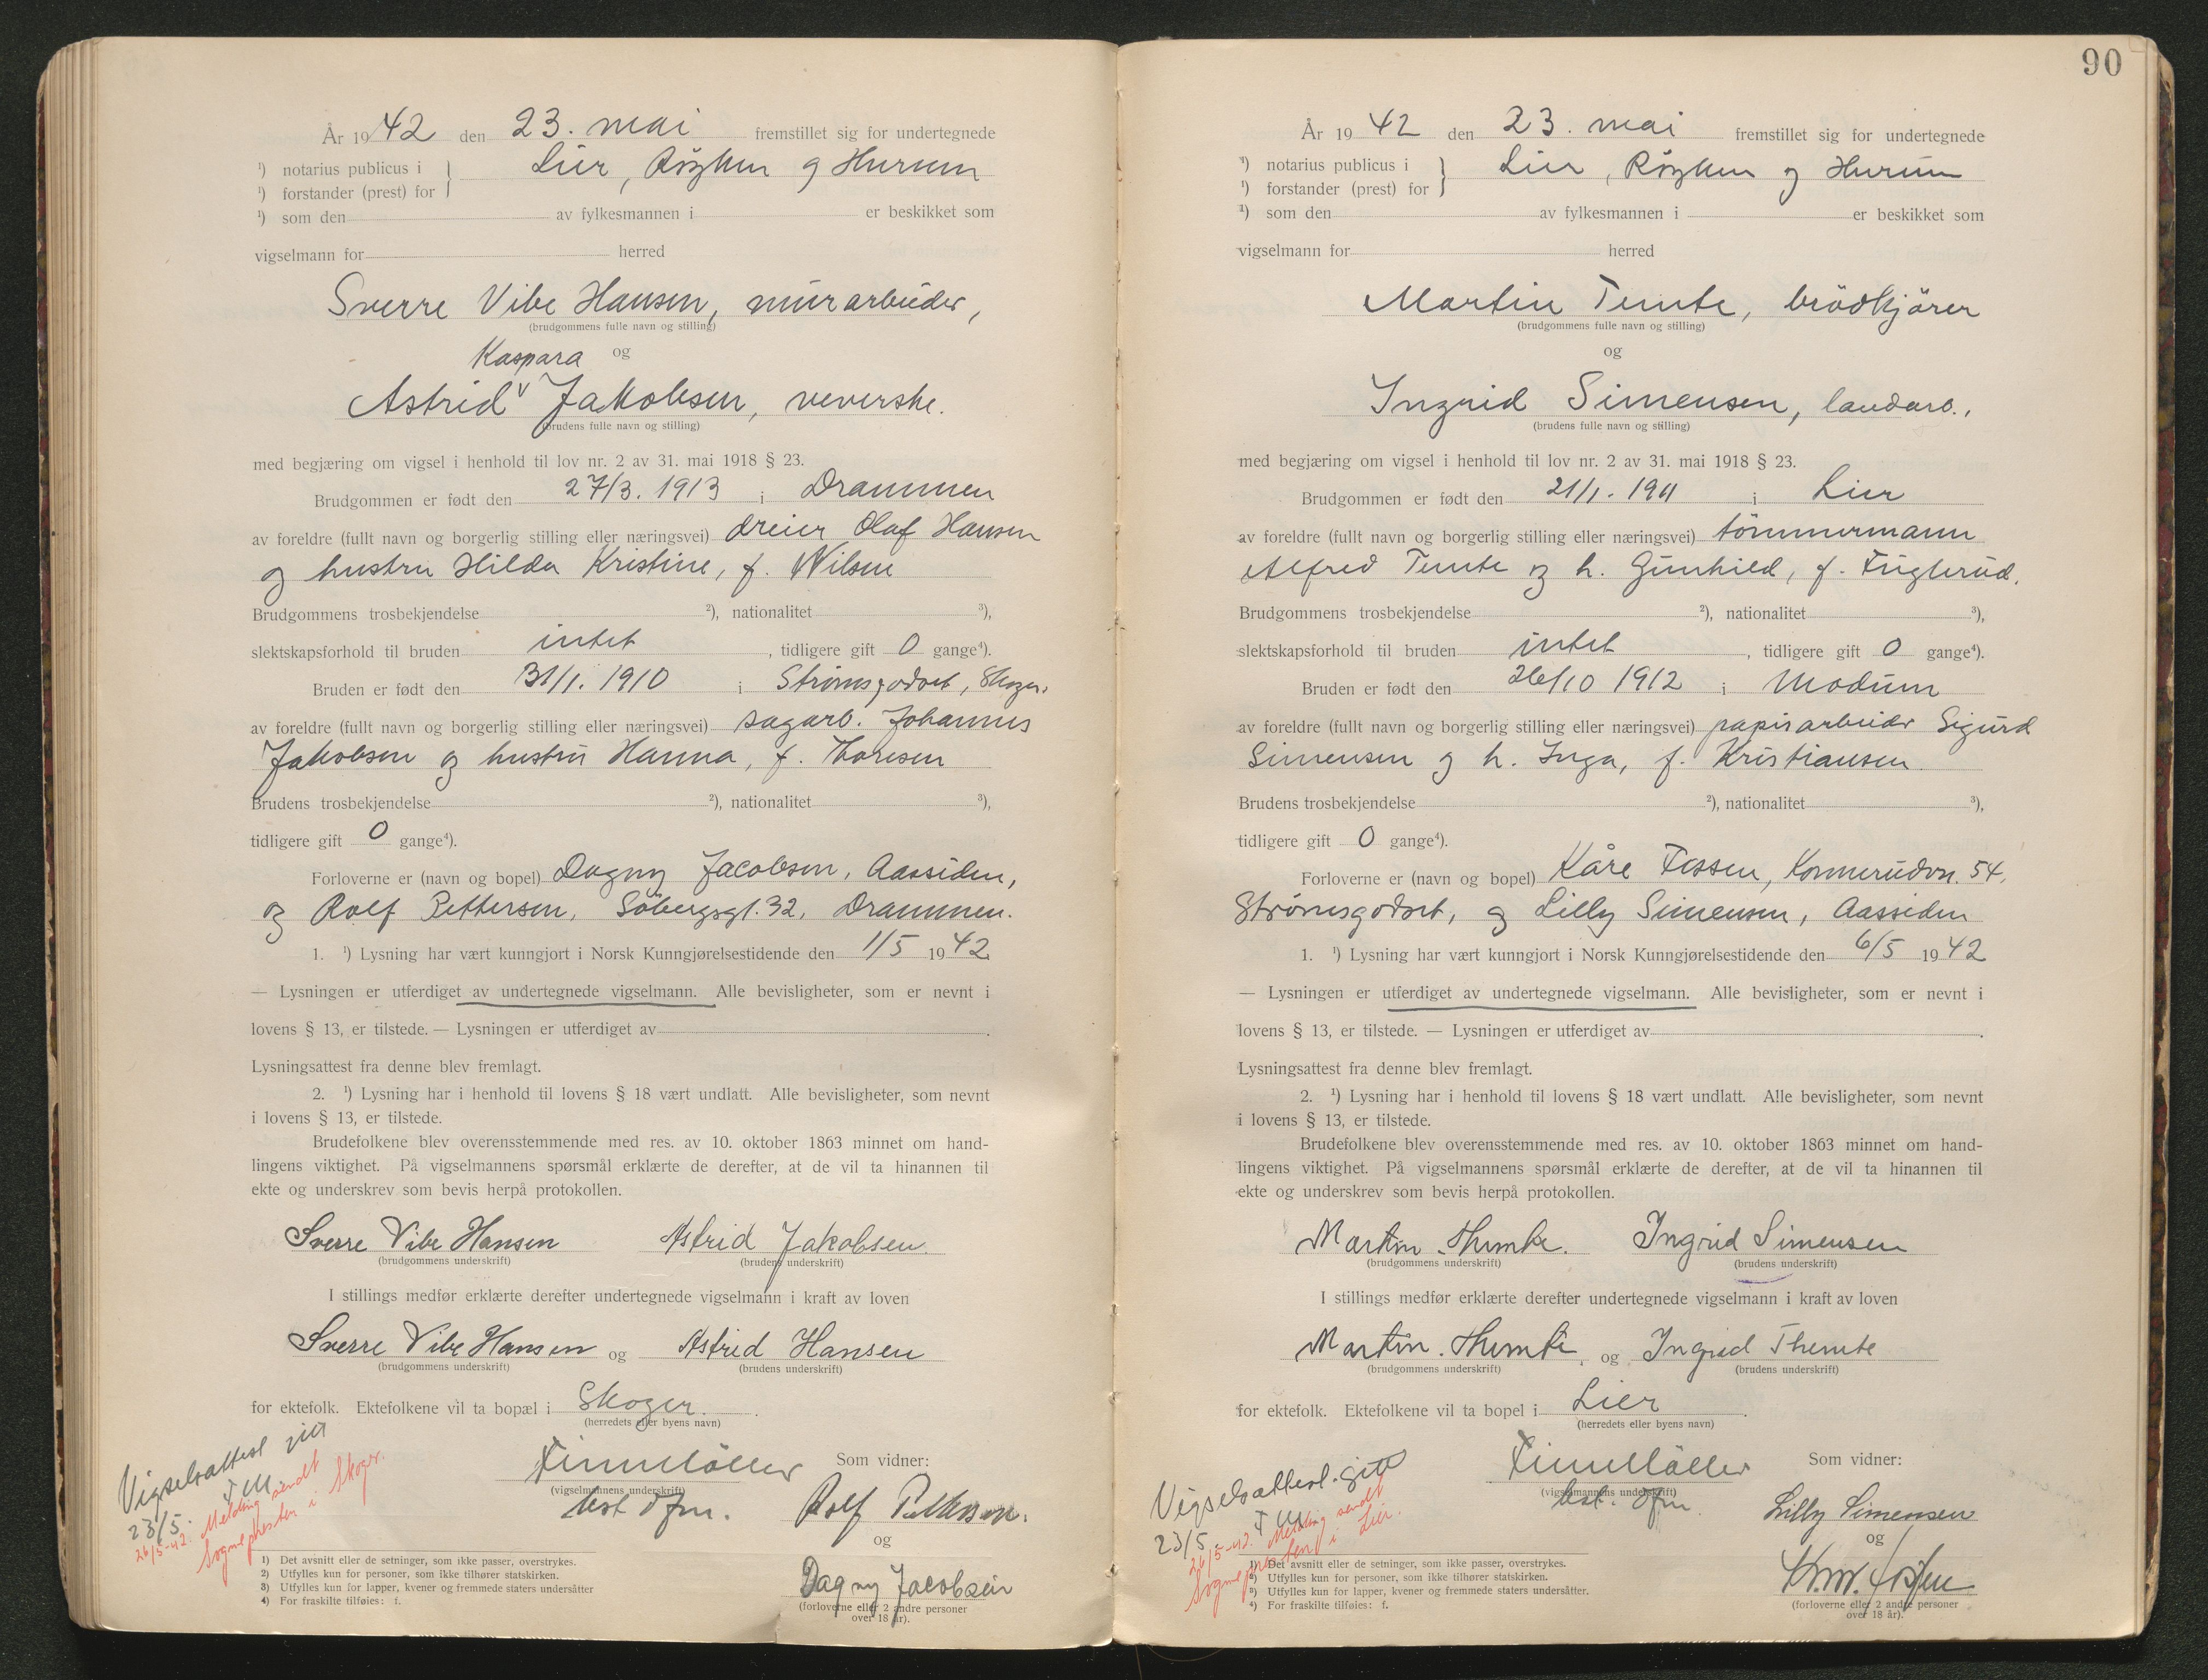 År 1942 den 23. mai fremstillet sig for undertegnede
¹) notarius publicus i } Lier, Røyken og Hurum
¹) forstander (prest) for
¹) som den av fylkesmannen i er beskikket som
vigselmann for herred
Sverre Vibe Hansen, murarbeider,
(brudgommens fulle navn og stilling)
Kaspara og
Astrid ᵛ Jakobsen, veverske.
(brudens fulle navn og stilling)
med begjæring om vigsel i henhold til lov nr. 2 av 31. mai 1918 § 23.
Brudgommen er født den 27/3. 1913 i Drammen
av foreldre (fullt navn og borgerlig stilling eller næringsvei) dreier Olaf Hansen
og hustru Hilda Kristine, f. Nilsen
Brudgommens trosbekjendelse ²), nationalitet ³),
slektskapsforhold til bruden intet, tidligere gift 0 gange⁴).
Bruden er født den 31/1. 1910 i Strømsgodset, Skoger.
av foreldre (fullt navn og borgerlig stilling eller næringsvei) sagarb. Johannes
Jakobsen og hustru Hanna, f. Thoresen
Brudens trosbekjendelse ²), nationalitet ³),
tidligere gift 0 gange⁴).
Forloverne er (navn og bopel) Dagny Jacobsen, Aassiden,
og Rolf Pettersen, Söbergsgt. 32, Drammen.
1. ¹) Lysning har vært kunngjort i Norsk Kunngjørelsestidende den 1/5 1942
— Lysningen er utferdiget av undertegnede vigselmann. Alle bevisligheter, som er nevnt i
lovens § 13, er tilstede. — Lysningen er utferdiget av .
Lysningsattest fra denne blev fremlagt.
2. ¹) Lysning har i henhold til lovens § 18 vært undlatt. Alle bevisligheter, som nevnt
i lovens § 13, er tilstede.
Brudefolkene blev overensstemmende med res. av 10. oktober 1863 minnet om hand-
lingens viktighet. På vigselmannens spørsmål erklærte de derefter, at de vil ta hinannen til
ekte og underskrev som bevis herpå protokollen.
Sverre Vibe Hansen Astrid Jakobsen.
(brudgommens underskrift) (brudens underskrift)
I stillings medfør erklærte derefter undertegnede vigselmann i kraft av loven
Sverre Vibe Hansen og Astrid Hansen
(brudgommens underskrift) (brudens underskrift)
for ektefolk. Ektefolkene vil ta bopæl i Skoger.
(herredets eller byens navn)
Vigselsattest gitt
23/5. FM
26/5-42. Melding sendt
Sognepresten i Skoger.
Finn Møller Som vidner:
(vigselmannens underskrift)
best dfm. Rolf Pettersen.
og
Dagny Jacobsen
(forloverne eller 2 andre personer
over 18 år).
1) Det avsnitt eller de setninger, som ikke passer, overstrykes.
2) Utfylles kun for personer, som ikke tilhører statskirken.
3) Utfylles kun for lapper, kvener og fremmede staters undersåtter
4) For fraskilte tilføies: f.
90
År 1942 den 23. mai fremstillet sig for undertegnede
¹) notarius publicus i } Lier, Røyken og Hurum
¹) forstander (prest) for
¹) som den av fylkesmannen i er beskikket som
vigselmann for herred
Martin Temte, brödkjörer
(brudgommens fulle navn og stilling)
og
Ingrid Simensen, landarb.,
(brudens fulle navn og stilling)
med begjæring om vigsel i henhold til lov nr. 2 av 31. mai 1918 § 23.
Brudgommen er født den 21/1. 1911 i Lier
av foreldre (fullt navn og borgerlig stilling eller næringsvei) tömmermann
Alfred Temte og h. Gunhild, f. Fuglerud.
Brudgommens trosbekjendelse ²), nationalitet ³),
slektskapsforhold til bruden intet, tidligere gift 0 gange⁴).
Bruden er født den 26/10 1912 i Modum
av foreldre (fullt navn og borgerlig stilling eller næringsvei) papirarbeider Sigurd
Simensen og h. Inga, f. Kristiansen
Brudens trosbekjendelse ²), nationalitet ³),
tidligere gift 0 gange⁴).
Forloverne er (navn og bopel) Kåre Fossen, Konnerudvn. 54,
Strømsgodset, og Lilly Simensen, Aassiden
1. ¹) Lysning har vært kunngjort i Norsk Kunngjørelsestidende den 6/5 1942
— Lysningen er utferdiget av undertegnede vigselmann. Alle bevisligheter, som er nevnt i
lovens § 13, er tilstede. — Lysningen er utferdiget av .
Lysningsattest fra denne blev fremlagt.
2. ¹) Lysning har i henhold til lovens § 18 vært undlatt. Alle bevisligheter, som nevnt
i lovens § 13, er tilstede.
Brudefolkene blev overensstemmende med res. av 10. oktober 1863 minnet om hand-
lingens viktighet. På vigselmannens spørsmål erklærte de derefter, at de vil ta hinannen til
ekte og underskrev som bevis herpå protokollen.
Martin Themte. Ingrid Simensen
(brudgommens underskrift) (brudens underskrift)
I stillings medfør erklærte derefter undertegnede vigselmann i kraft av loven
Martin Themte og Ingrid Themte
(brudgommens underskrift) (brudens underskrift)
for ektefolk. Ektefolkene vil ta bopel i Lier.
(herredets eller byens navn)
Vigselsattest gitt
23/5 FM
26/5-42. Melding sendt
Sognepresten i Lier.
Finn Møller Som vidner:
(vigselmannens underskrift)
best. dfm Lilly Simensen
og
(forloverne eller 2 andre personer
over 18 år).
1) Det avsnitt eller de setninger, som ikke passer, overstrykes.
2) Utfylles kun for personer, som ikke tilhører statskirken.
3) Utfylles kun for lapper, kvener og fremmede staters undersåtter.
4) For fraskilte tilføies: f.